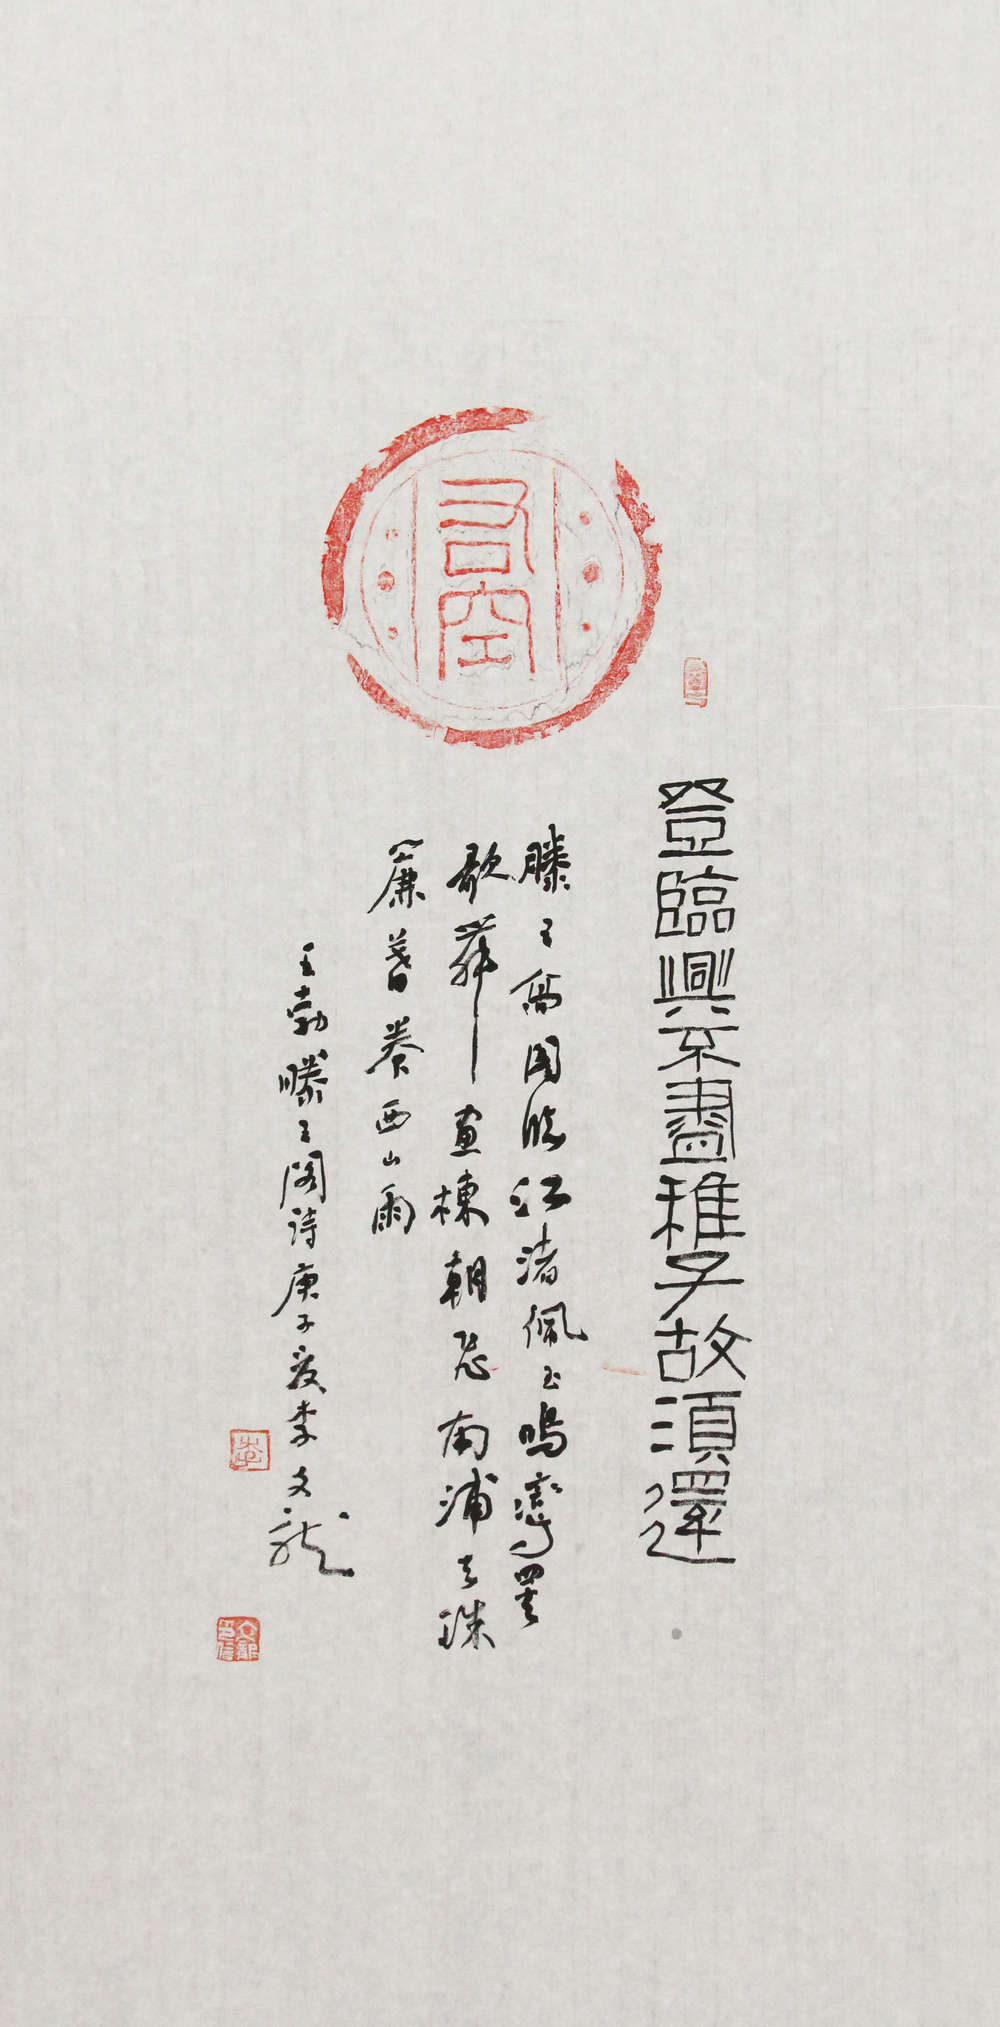 右空
登臨興不盡稚子故須還
滕王高閣臨江渚佩玉鳴鸞罷
歌舞畫棟朝飛南浦云珠
簾暮卷西山雨
王勃滕王閣詩庚子夏李文龍
李